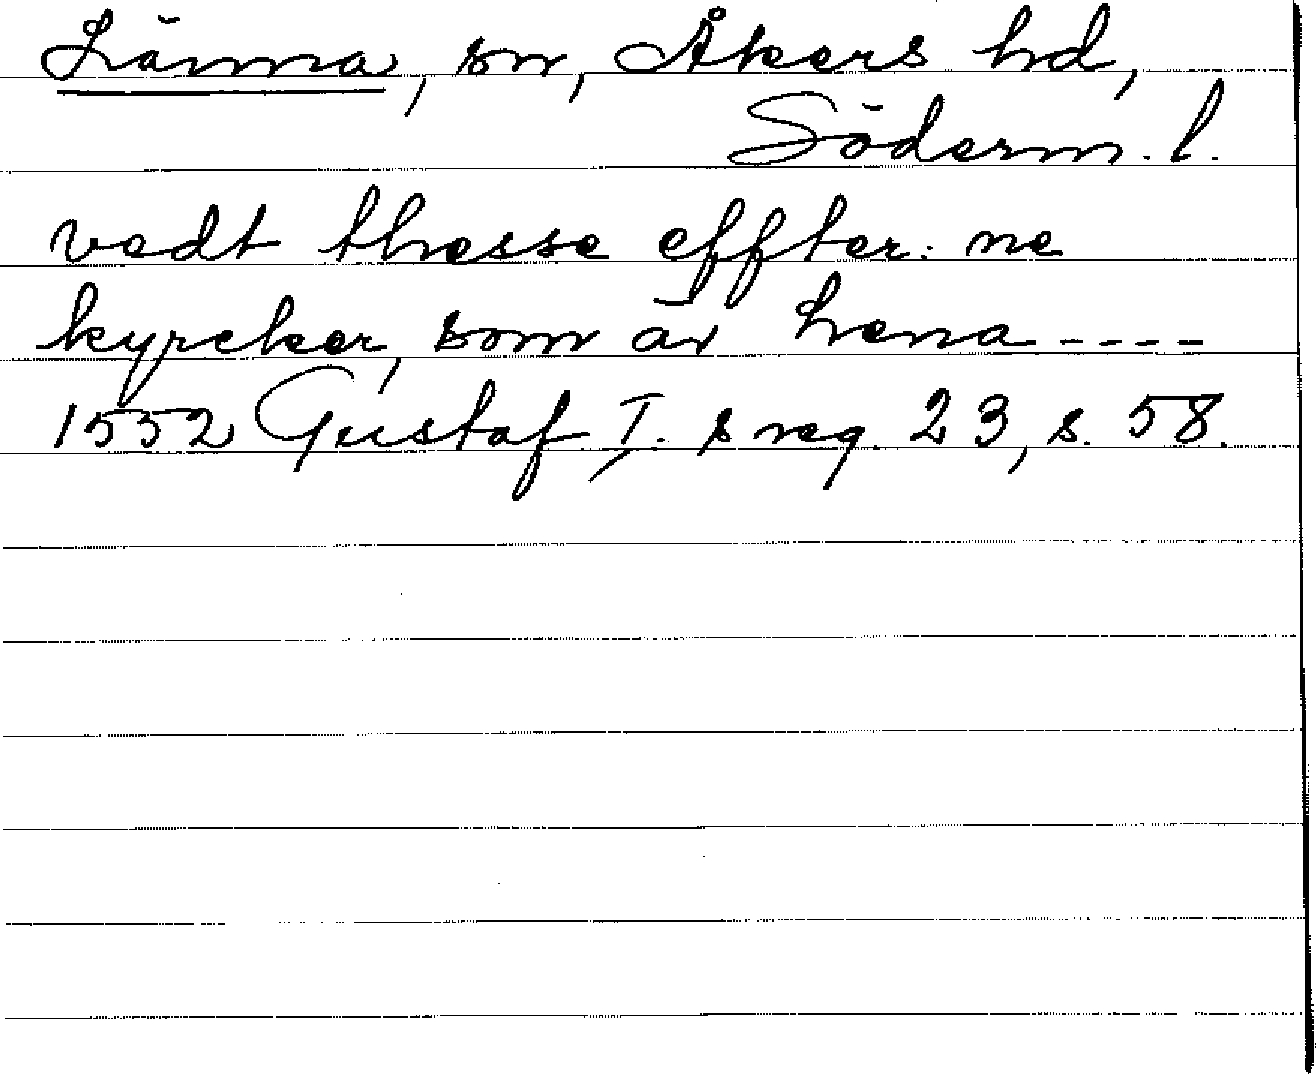 Länna, sn, Åkers hd,
Söderm. l.
vedt thesse effter: ne
kyrcker, som är hena ----
1552 Gustaf I. s reg. 23, s. 58.